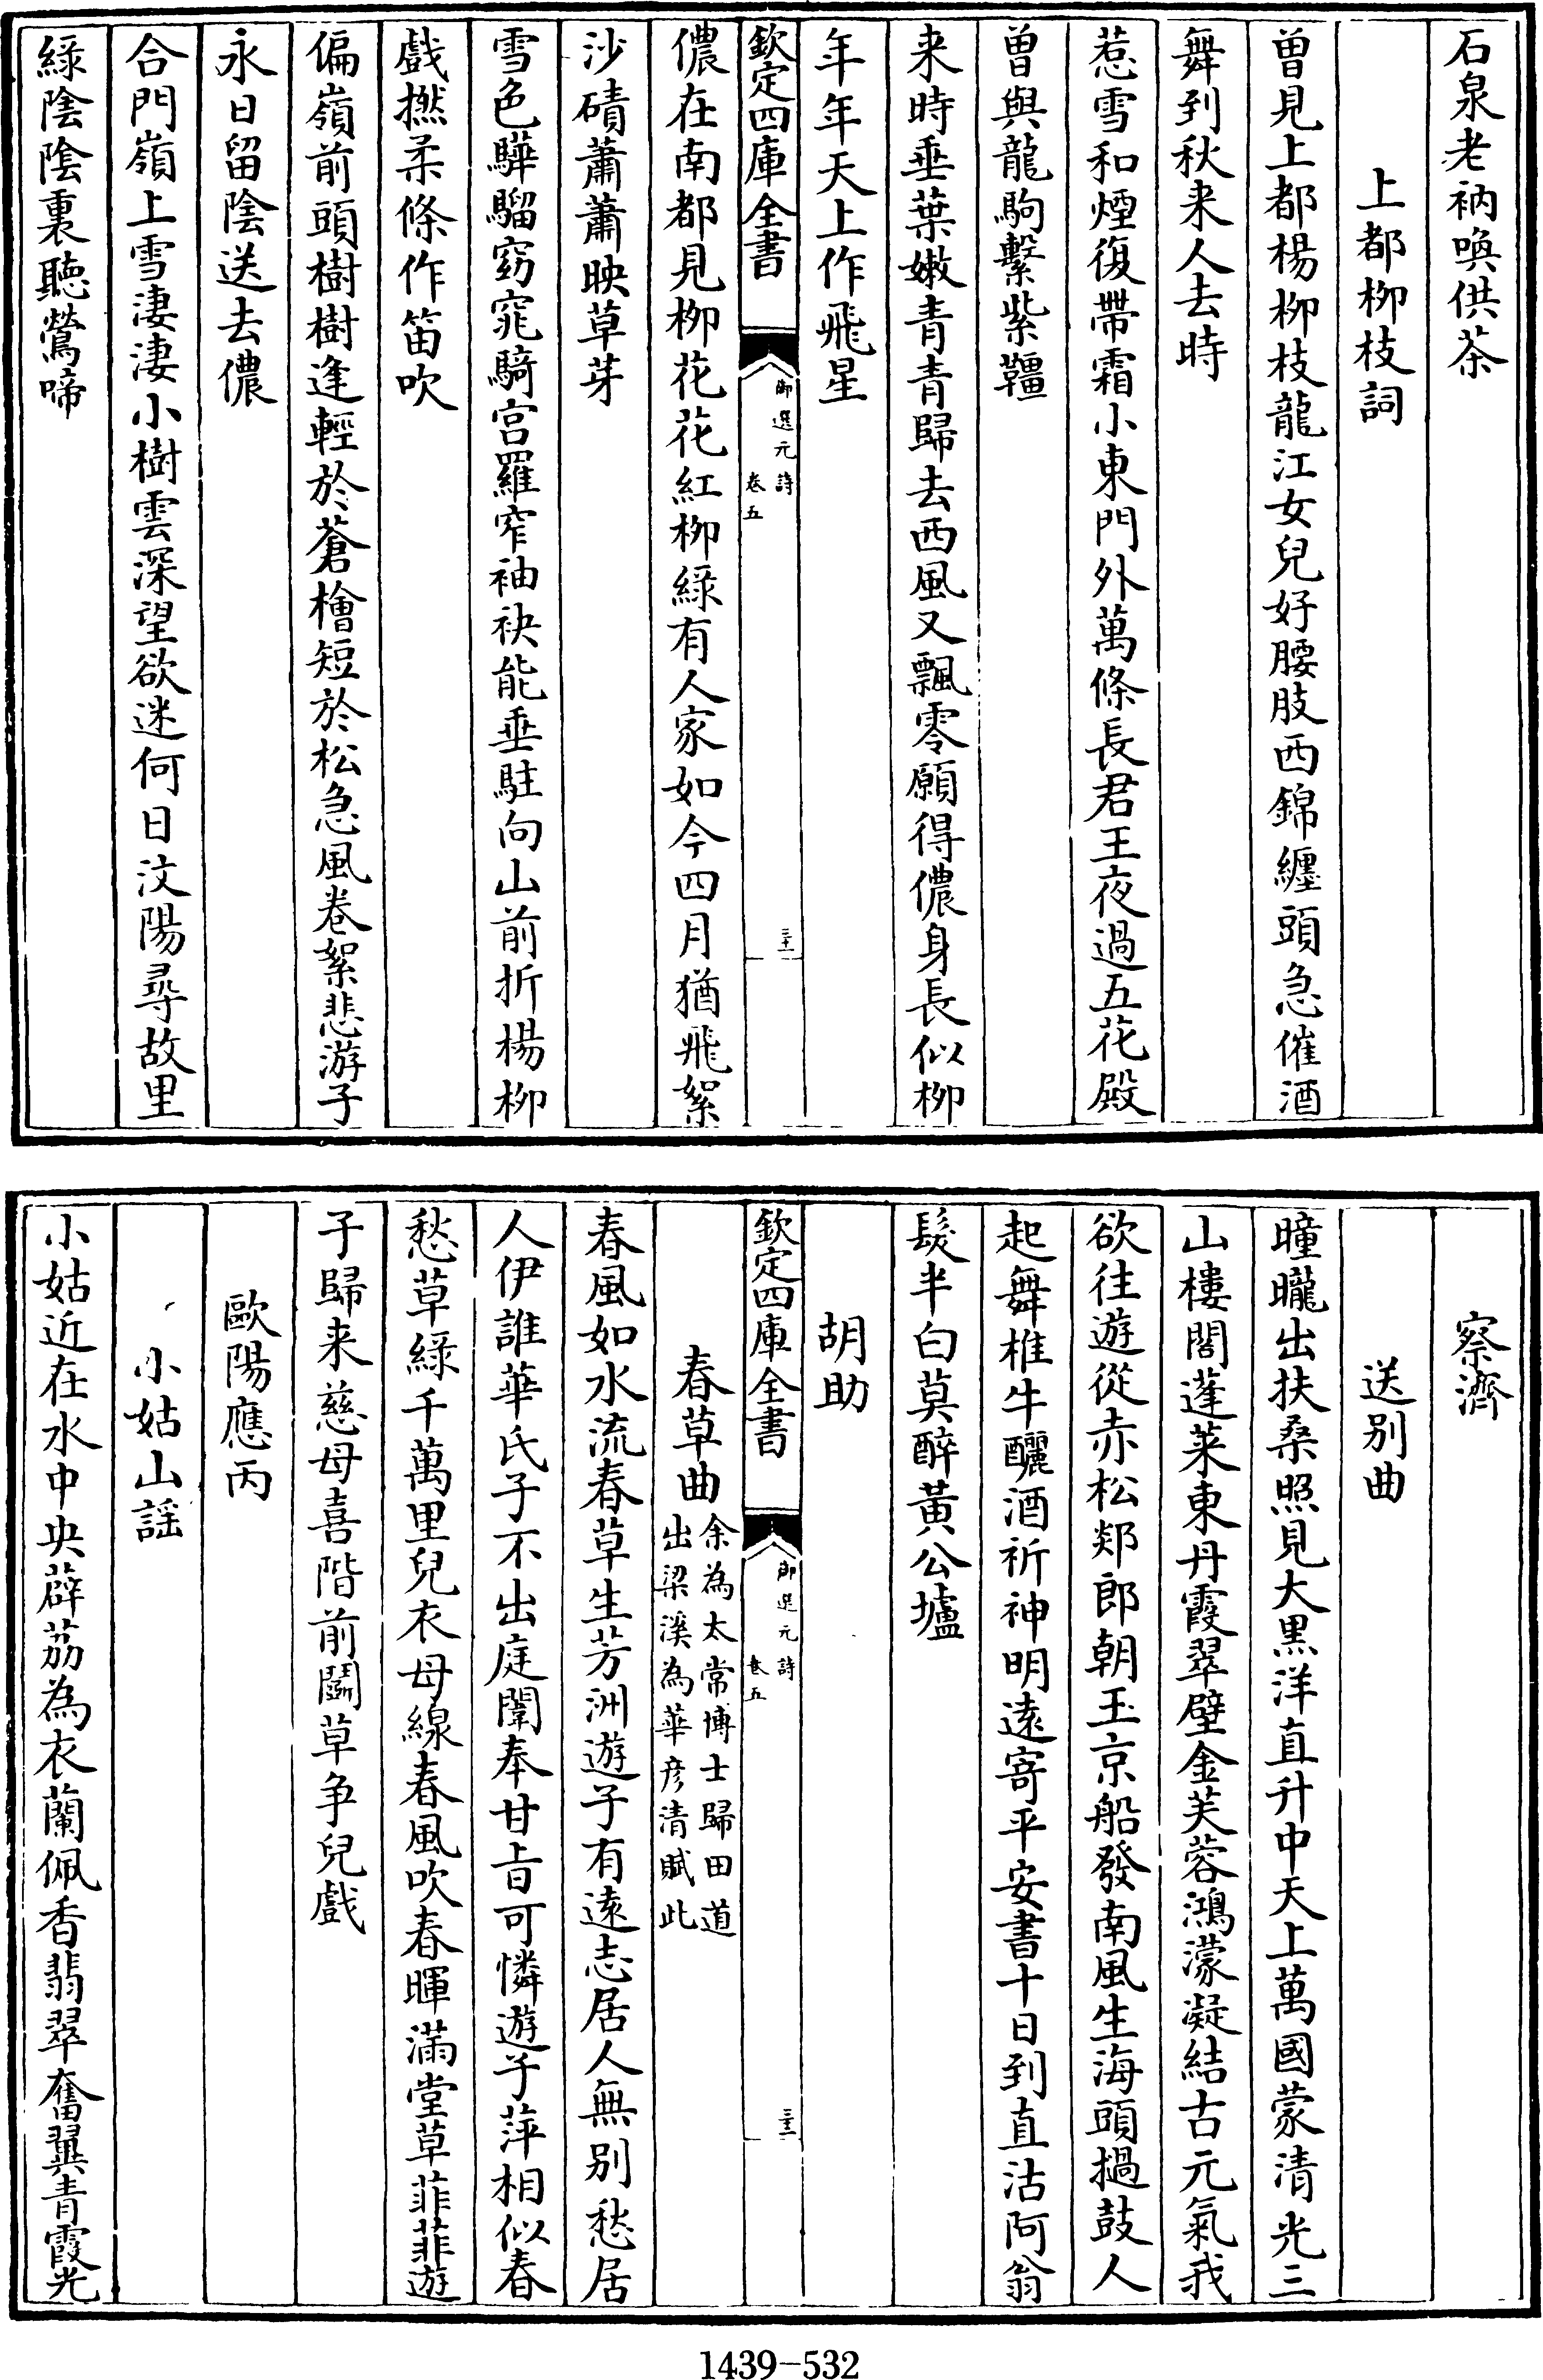 石泉老衲喚供茶
上都柳枝詞
曽見上都楊柳枝龍江女兒好腰肢西錦纏頭急催酒
舞到秋来人去時
惹雪和煙復帶霜小東門外萬條長君王夜過五花殿
曽與龍駒繫紫韁
来時垂葉嫩青青歸去西風又飄零願得儂身長似柳
年年天上作飛星
欽定四庫全書
御選元詩
卷五
三十一
儂在南都見柳花花紅柳綠有人家如今四月猶飛絮
沙磧蕭蕭映草芽
雪色驊騮窈窕騎宫羅窄袖袂能垂駐向山前折楊柳
戲撚柔條作笛吹
偏嶺前頭樹樹逢輕於蒼檜短於松急風卷絮悲游子
永日留陰送去儂
合門嶺上雪淒淒小樹雲深望欲迷何日汶陽尋故里
綠陰陰裏聽鶯啼
察濟
送别曲
曈曨出扶桑照見大黒洋直升中天上萬國蒙清光三
山樓閣蓬萊東丹霞翠壁金芙蓉鴻濛凝結古元氣我
欲往遊從赤松郯郎朝玉京船發南風生海頭撾鼓人
起舞椎牛釃酒祈神明逺寄平安書十日到直沽阿翁
髮半白莫醉黃公壚
胡助
欽定四庫全書
御選元詩
卷五
三十二
春草曲
余為太常博士歸田道
出梁溪為華彦清賦此
春風如水流春草生芳洲遊子有逺志居人無别愁居
人伊誰華氏子不出庭闈奉甘㫖可憐遊子萍相似春
愁草綠千萬里兒衣母線春風吹春暉滿堂草菲菲遊
子歸来慈母喜階前鬬草爭兒戲
歐陽應丙
小姑山謡
小姑近在水中央薜荔為衣蘭佩香翡翠奮翼青霞光
1439-532